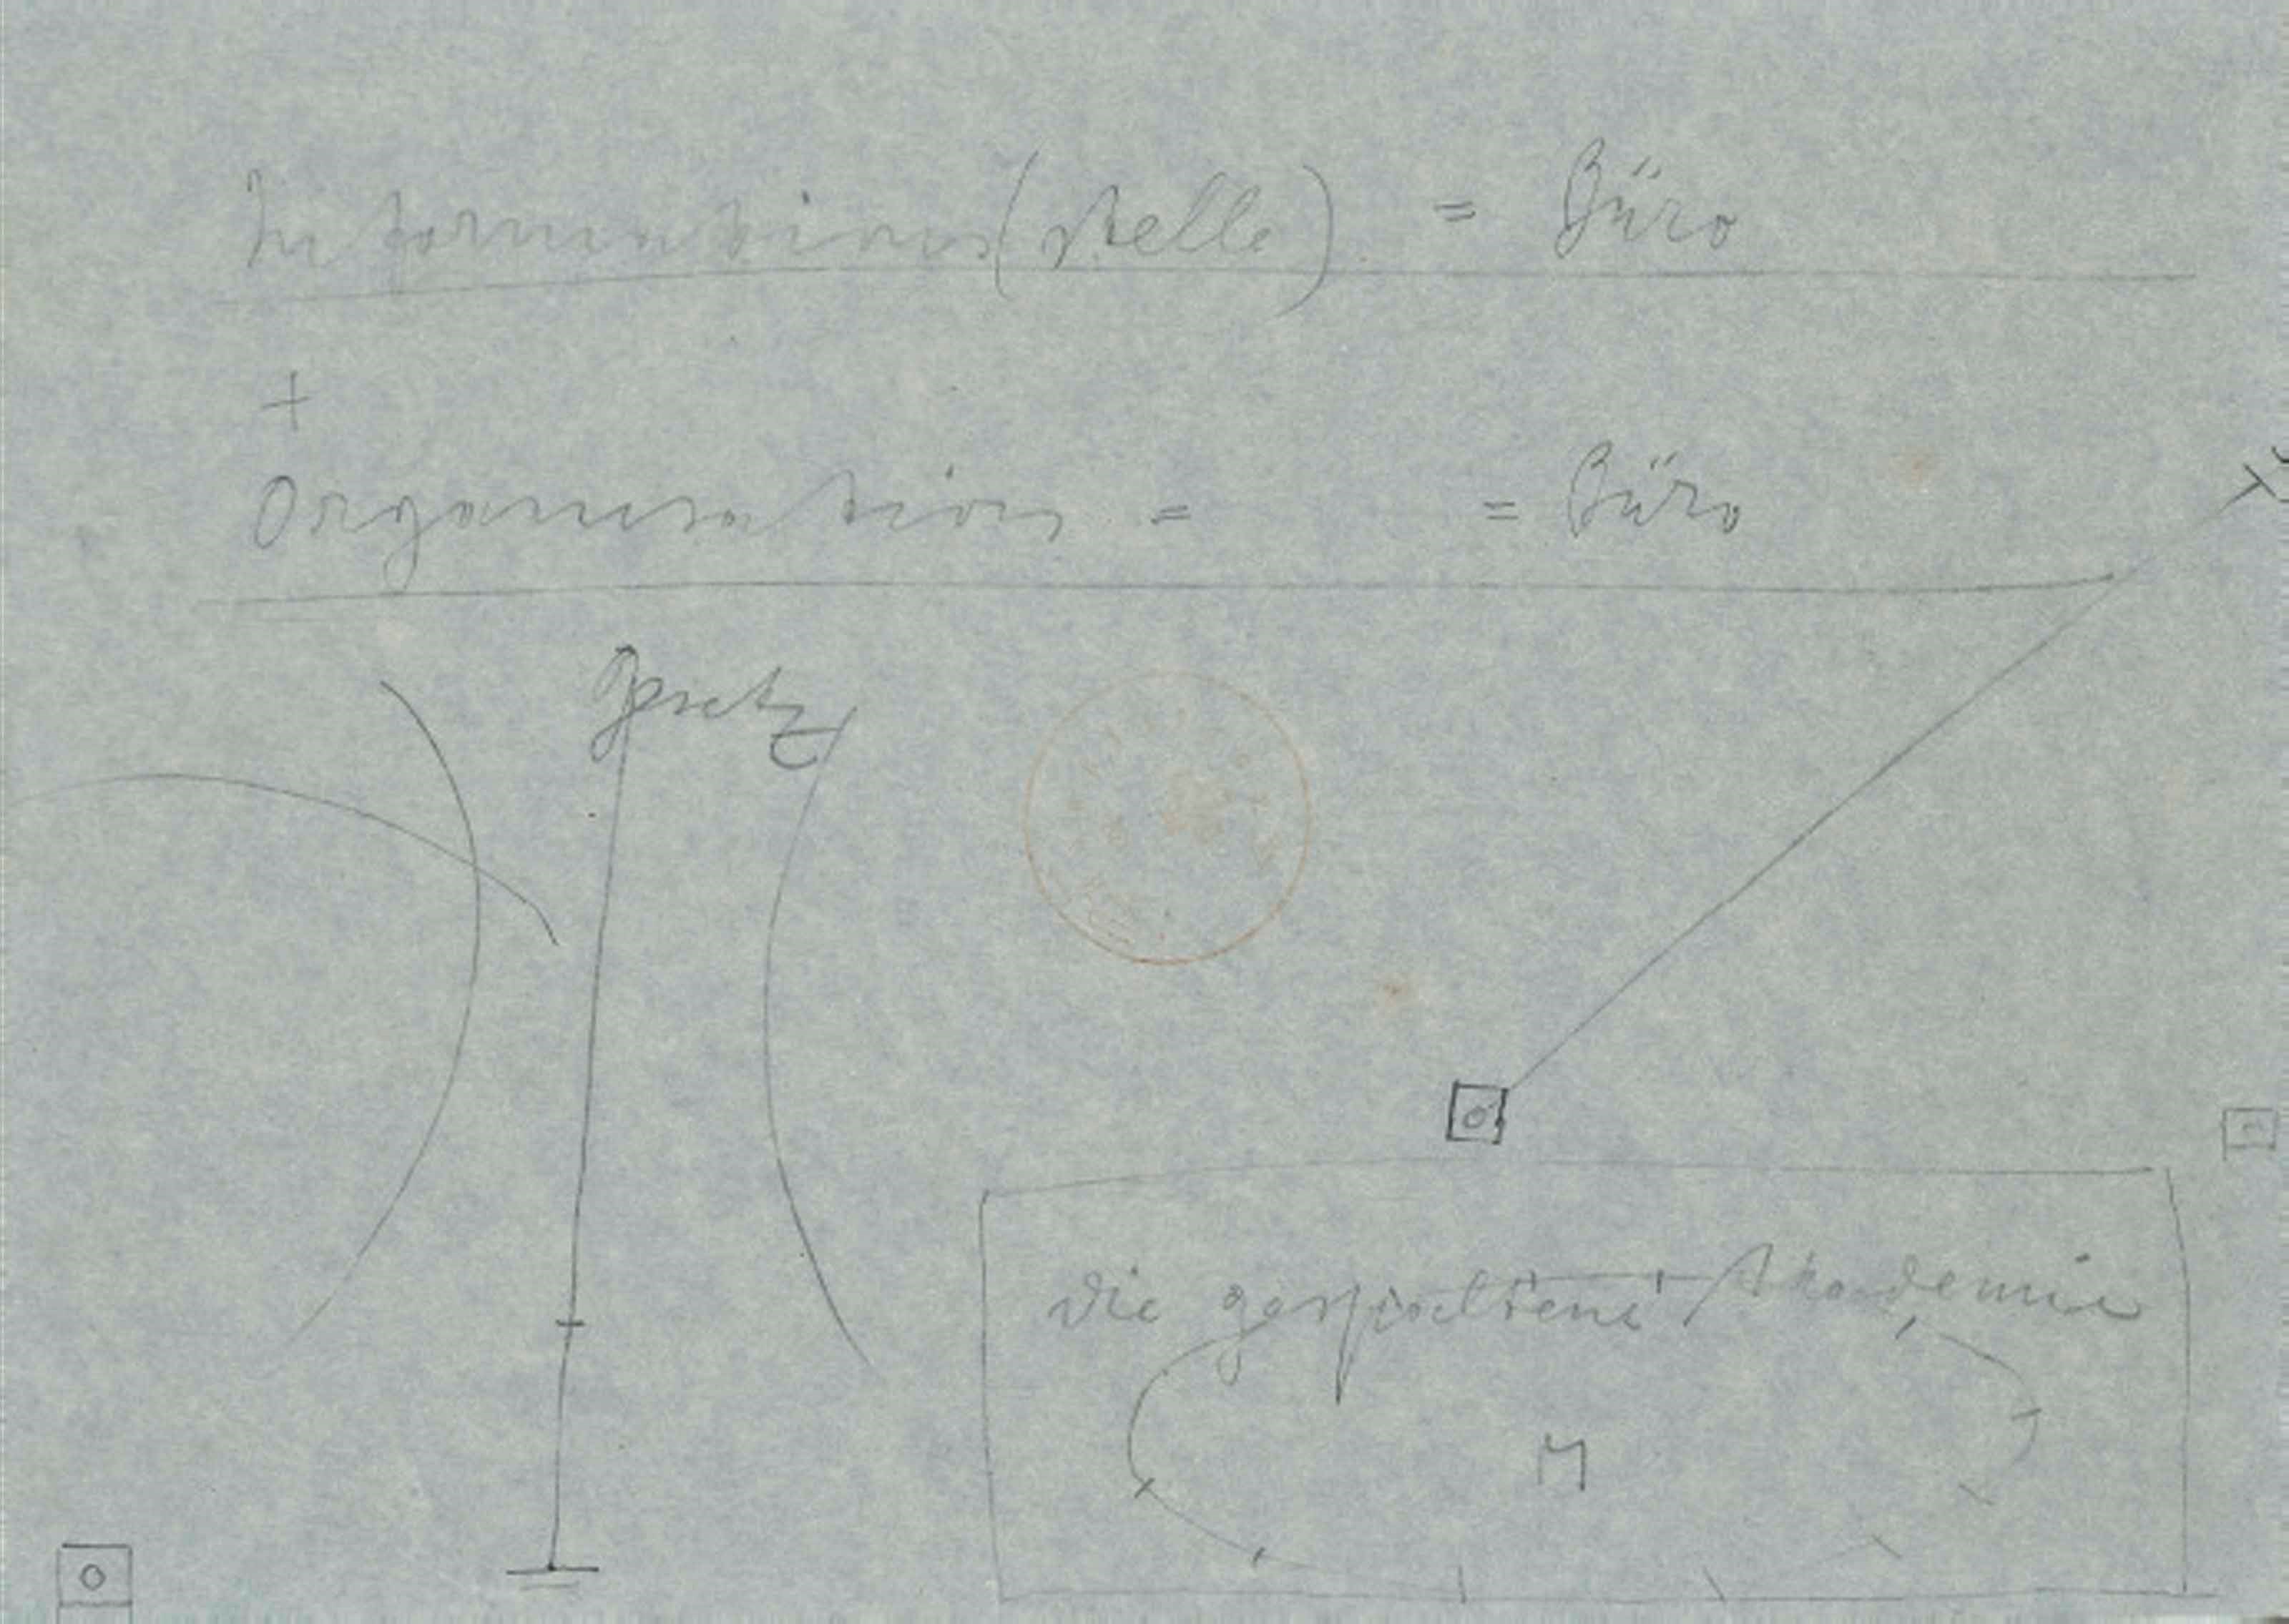 Informations(stelle) = Büro
+
Organisation = = Büro
Gesetz
die gespaltene Akademie
M